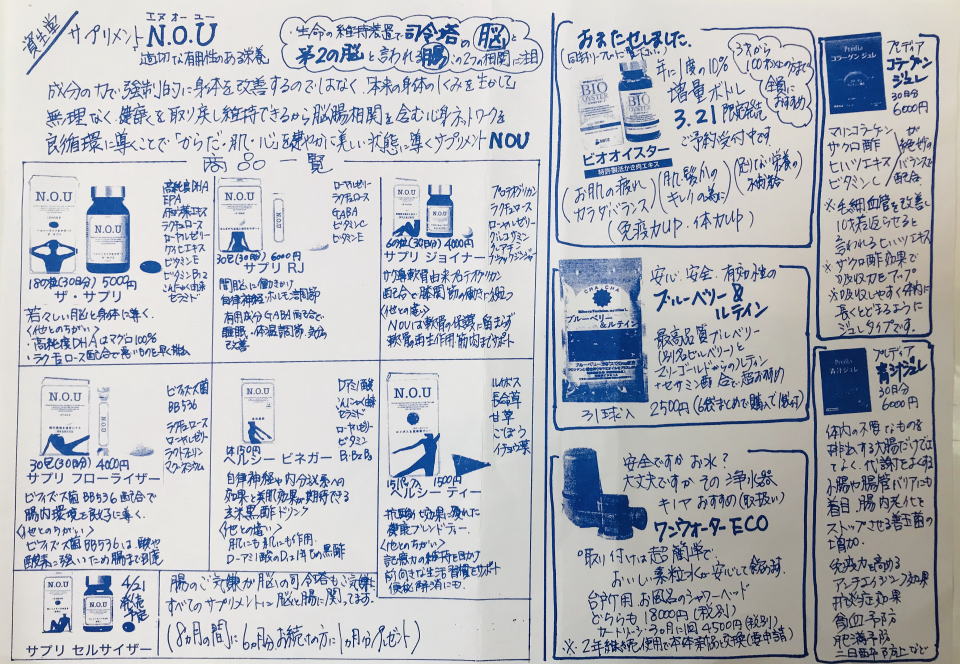 資生堂
サプリメント N.O.U
エヌ オー ユー
適切な有用性のある栄養
生命の維持装置で司令塔の脳と
第2の脳と言われる腸この2つの相関に注目
成分の力で強制的に身体を改善するのではなく「本来の身体のしくみを生かして」
無理なく健康を取り戻し維持できるから脳腸相関を含む心身ネットワークを
良循環に導くことで「からだ・肌・心」を健やかに美しい状態に導くサプリメントNOU
商品一覧
N.O.U
N.O.U
高純度DHA
EPA
ラクチュロース
ローヤルゼリー
ケイヒエキス
ビタミンE
ビタミンB12
こんにゃく由来
セラミド
180粒(30日分) 5000円
ザ・サプリ
若々しい脳と身体に導く.
<他とのちがい>
・高純度DHAはマグロ100%
・ラクチュロース配合で悪いものを早く排出
N.O.U
ローヤルゼリー
ラクチュロース
GABA
ビタミンC
ビタミンE
30包(30日分) 6000円
サプリ RJ
間脳に働きかけ
自律神経・ホルモン調節
有用成分GABA配合で
睡眠・体温調節・気分
改善
N.O.U
プロテオグリカン
ラクチュロース
ローヤルゼリー
グルコサミン
60粒(30日分) 4000円
サプリ ジョイナー
サケ鼻軟骨由来プロテオグリカン
配合で膝関節の働きに役立つ
<他との違い>
NOUは軟骨の保護に留まらず
軟骨再生作用・筋肉までサポート
N.O.U
ビフィズス菌
BB536
ラクチュロース
ローヤルゼリー
ラクトフェリン
マグネシウム
30包(30日分) 4000円
サプリ フローライザー
ビフィズス菌BB536配合で
腸内環境を良好に導く.
<他とのちがい>
ビフィズス菌BB536は、酸や
酸素に強いため腸まで到達
N.O.U
アミノ酸
こんにゃく由来
セラミド
ローヤルゼリー
ビタミン
B1・B2・B6
1本150円
ヘルシー ビネガー
自律神経や内分泌系への
効果と美肌効果が期待できる
玄米黒酢ドリンク
<他との違い>
肌にも体にも作用.
N.O.U
ルイボス
長命草
甘草
ごぼう
イチョウ葉
15パック入 1500円
ヘルシー ティー
抗酸化効果に優れた
健康ブレンドティー.
<他とのちがい>
記憶力の維持を助け
前向きな生活習慣をサポート
便秘解消にも.
N.O.U
N.O.U
4/21
発売
予定
サプリ セルサイザー
腸のご気嫌が脳の司令塔もご気嫌と
すべてのサプリメントに脳と腸に関ってます.
(8ヵ月の間に6ヵ月分お続けの方に1ヵ月分プレゼント)
おまたせしました.
BIO
OYSTER
BIO
OYSTER
ビオオイスター
特許製法かき肉エキス
年に1度の10%
増量ボトル
3.21限定発売
ご予約受付中です.
3才から
100才以上の方まで
全員に
おすすめ
(お肌の疲れ カラダバランス)
(肌・髪・爪の キレイの為に)
(足りない栄養の 補給)
(免疫力UP・体力UP)
CHA☆CHA
ブルーベリー
&ルテイン
安心、安全、有効性の
ブルーベリー &
ルテイン
最高品質ブルーベリー
(別名ビルベリー)と
マリーゴールドからのルテイン
+セサミン酢合で超お勧め
31球入 2500円(6袋まとめて購入で1袋付)
安全ですかお水?
大丈夫ですかその浄水器
キノアおすすめ(取扱い)
ワンウォーターECO
取り付けは超簡単で
おいしい素粒水が安心して飲めます.
台所用 お風呂のシャワーヘッド
どちらも18000円(税別)
カートリッジ30ヵ月に1回4500円(税別)
※2年継続使用で本体新品と交換(要申請)
Predia
コラーゲン ジュレ
プレディア
コラーゲン
ジュレ
30日分
6000円
マリンコラーゲン
サクロ酢
ヒハツエキス
ビタミンC
が
絶妙な
バランスで
配合.
※毛細血管を改善し
10才若返らせると
言われるヒハツエキス
※ザクロ酢効果で
吸収力をアップ
※吸収しやすく体内に
長くとどまるように
ジュレタイプです.
Predia
青汁ジュレ
プレディア
青汁ジュレ
30日分
6000円
体内の不要なものを
排出する大腸だけでは
なく、代謝をよくする
小腸や腸管バリアにも
着目、腸内老化を
ストップさせる善玉菌の
増加.
免疫力を高める
アンチエイジング効果
抗炎症効果
貧血予防
肥満予防
二日酔予防など